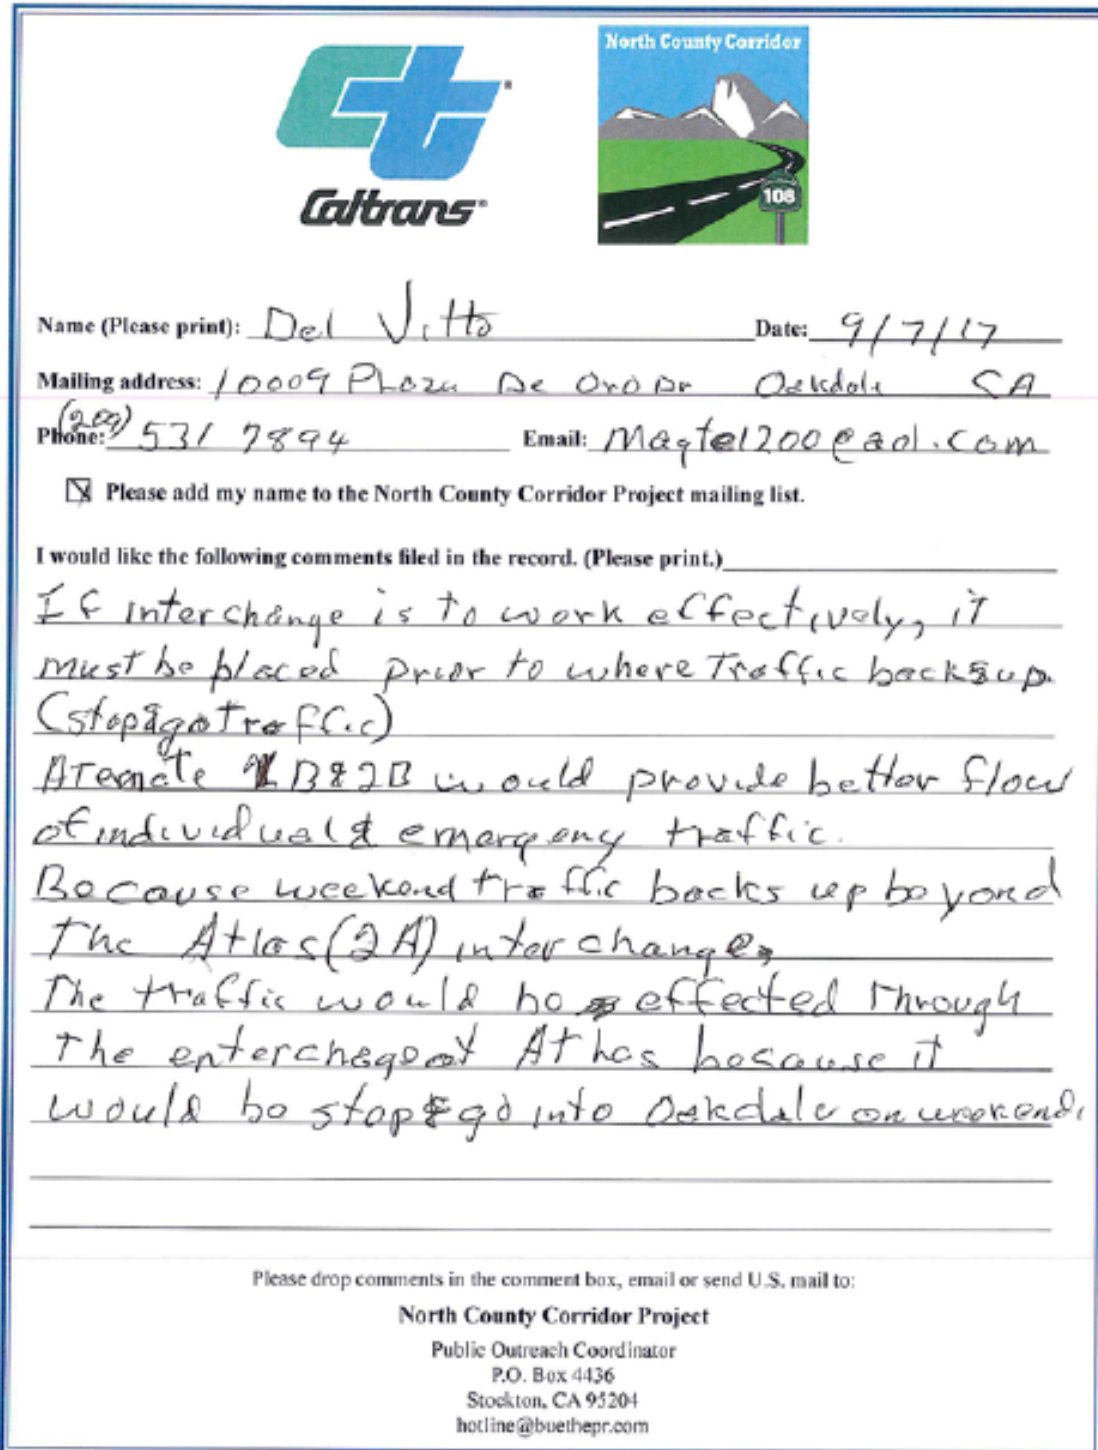 Caltrans
North County Corridor
108
Name (Please print): Del Vitto Date: 9/7/17
Mailing address: 10009 Plaza De Oro Dr Oakdale CA
Phone: (209) 531 7894 Email: Magtel200@aol.com
Please add my name to the North County Corridor Project mailing list.
I would like the following comments filed in the record. (Please print.)
If interchange is to work effectively, it
must be placed prior to where Traffic backs up
(stop & go Traffic)
Aternate 1B & 2B would provide better flow
of individual & emergeny traffic.
Because weekend traffic backs up beyond
The Atlas (2A) interchange,
The traffic would be effected Through
The enterchage at Atlas because it
would be stop & go into Oakdale on weekend.
Please drop comments in the comment box, email or send U.S. mail to:
North County Corridor Project
Public Outreach Coordinator
P.O. Box 4436
Stockton, CA 95204
hotline@buethepr.com